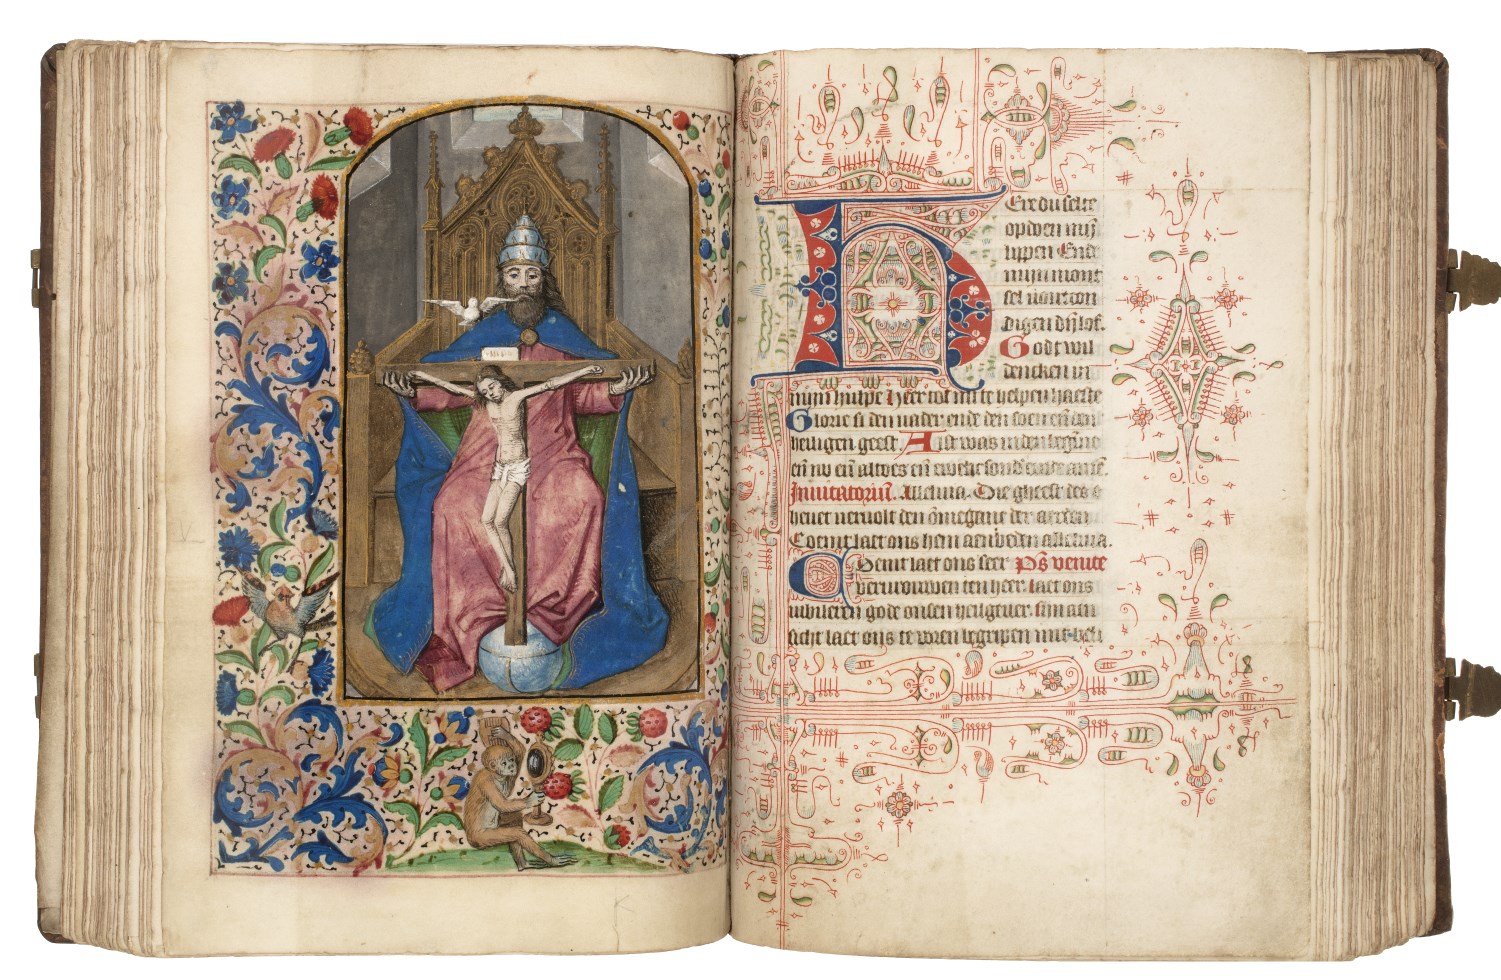 HEre du selte
opdoen mijn
lippen End
mijn mont
sel vort con
digen dijn lof.
Godt wil
dencken in
mijn hulpe Heer tot mi te helpen haeste
Glorie si den vader ende den soen en̄ den
heiligen geest. Alst was inden begīne
en̄ nv en̄ altoes en̄ ewelic sond einde amē.
Inuitatoriū. Alleluia. Die gheest des
heren vervolt den ōmeganc der aerden
Coemt laet ons hem aenbeden alleluia.
COemt laet ons seer Ps̄ venite
vervrouwen ten heer. laet ons
iubileren gode onsen heilgeuer. sijn aen
sicht laet ons te voren begripen mit beli